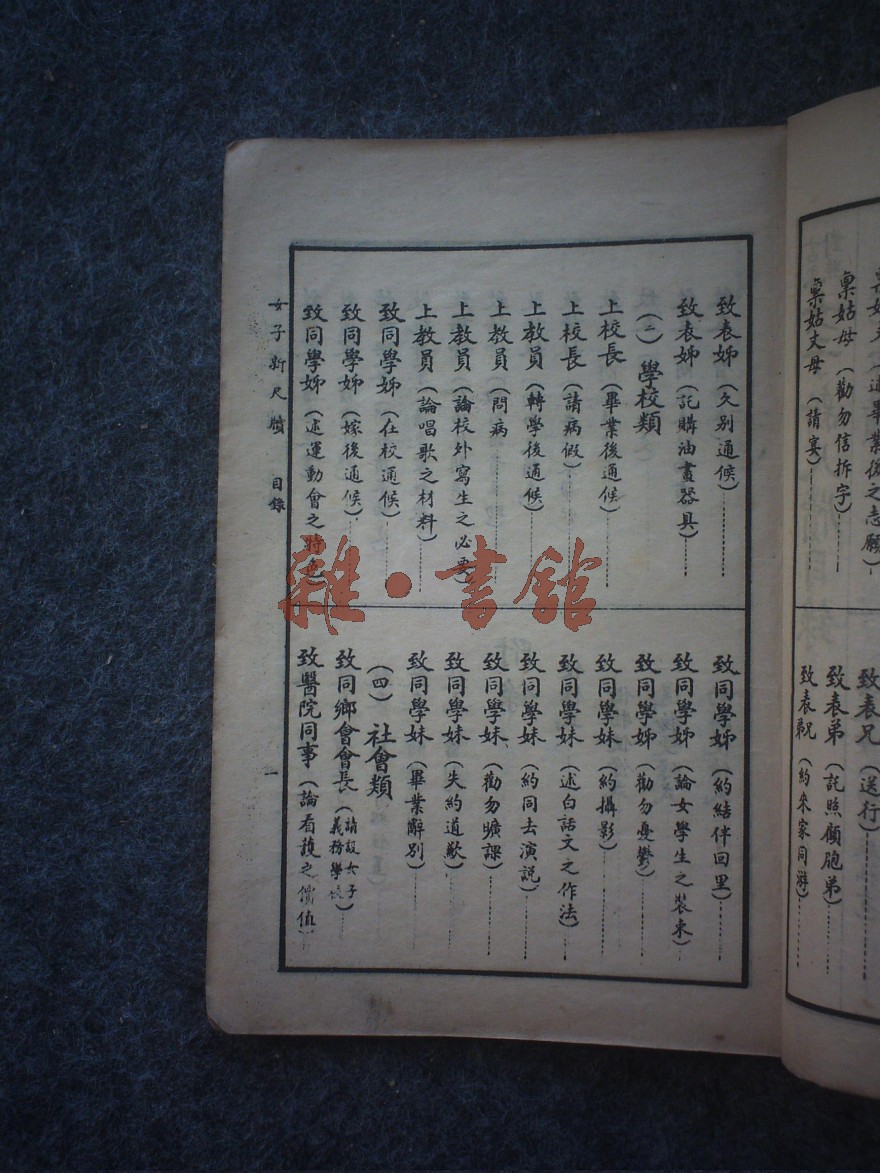 稟姑母（勸勿信拆字）
稟姑丈母（請宴）
致表兄（送行）
致表弟（託照顧胞弟）
致表兄弟（約來家同游）
致表姊（久别通候）
致表姊（託購油畫器具）
（二）學校類
上校長（畢業後通候）
上校長（請病假）
上教員（轉學後通候）
上教員（問病）
上教員（論校外寫生之必要）
上教員（論唱歌之材料）
致同學姊（在校通候）
致同學姊（嫁後通候）
致同學姊（述運動會之特色）
致同學姊（約結伴回里）
致同學姊（論女學生之裝束）
致同學姊（勸勿憂鬱）
致同學妹（約攝影）
致同學妹（述白話文之作法）
致同學妹（約同去演説）
致同學妹（勸勿曠課）
致同學妹（失約道歉）
致同學妹（畢業辭别）
（四）社會類
致同鄉會會長（請設女子義務學校）
致醫院同事（論看護之價值）
女子新尺牘 目錄 一
雜·書館